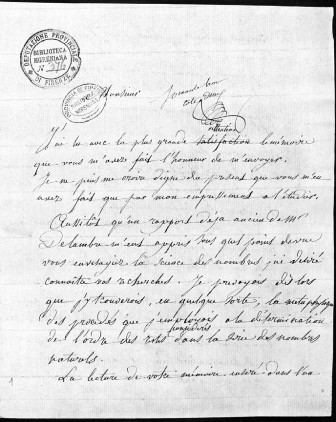 DEPUTAZIONE PROVINCIALE DI FIRENZE
BIBLIOTECA
MORENIANA
N. 276
Monsieur
attention
J'ai lu avec la plus grande satisfaction le mémoire
que vous m'avez fait l'honneur de m'envoyer.
Je ne puis me croire digne du présent que vous m'en
avez fait que par mon empressement à l'étudier.
Aussitôt qu'un rapport deja ancien de Mr
Delambre m'eut appris sous quel point de vue
vous envisagiez la science des nombres, j'ai désiré
connoître vos recherches. Je prevoyois dès lors
que j'y trouverois, en quelque sorte, la métaphysique
des procédés que j'employois à la determination
de l'ordre des résidus dans la série des nombres
naturels.
La lecture de votre mémoire inseré dans l'an